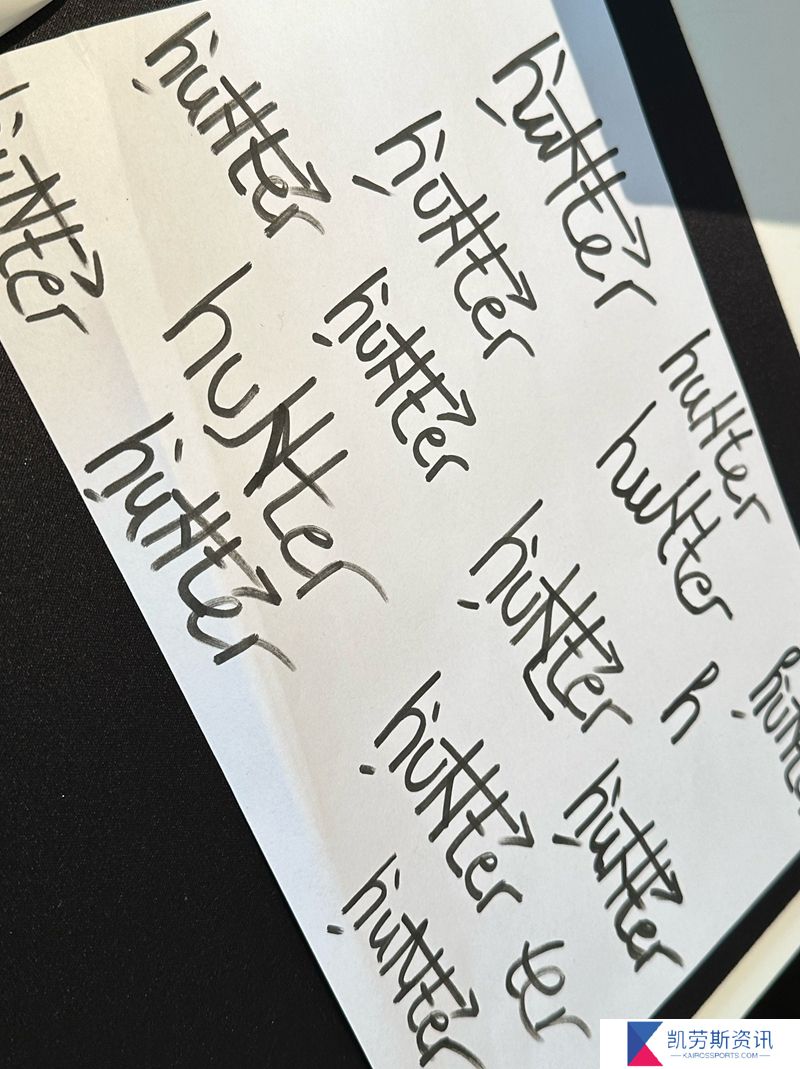 hunter
hunter
hunter
hunter
hunter
hunter
hunter
hunter
hunter
hunter
h
hunter
hunter
hunter
hunter
ter
凯劳斯资讯
KAIROSSPORTS.COM